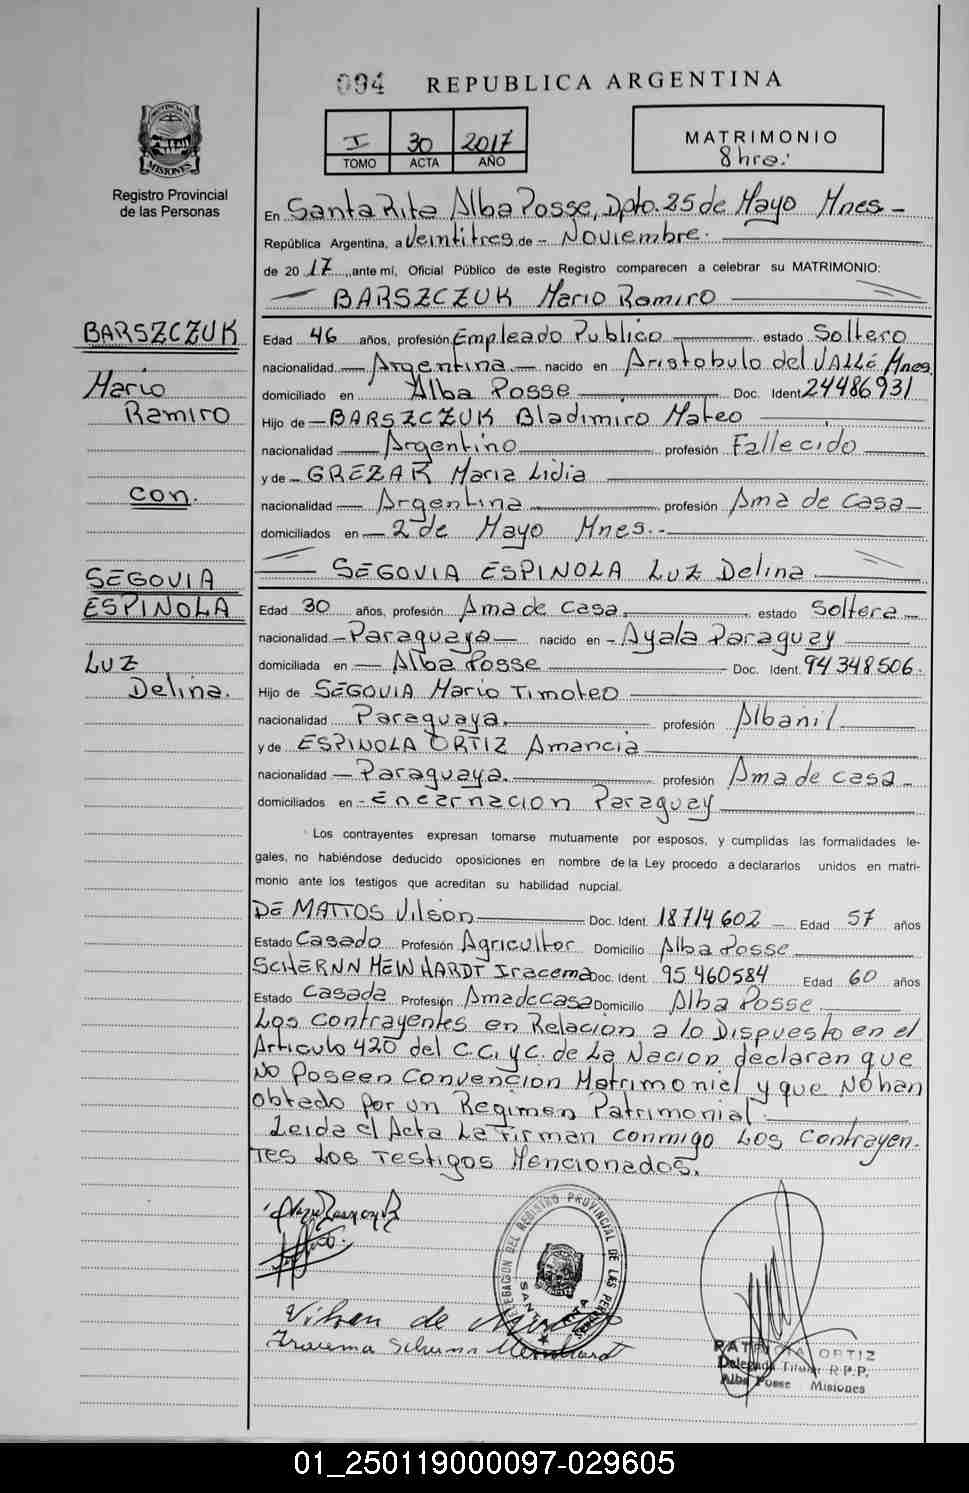 094 REPUBLICA ARGENTINA
I 30 2017
TOMO ACTA AÑO
MATRIMONIO
8 hrs.
PROVINCIA DE MISIONES
Registro Provincial
de las Personas
En Santa Rita Alba Posse, Dpto. 25 de Mayo Mnes.-
República Argentina, a Veintitres de - Noviembre.
de 20 17, ante mí, Oficial Público de este Registro comparecen a celebrar su MATRIMONIO:
BARSZCZUK Mario Ramiro
BARSZCZUK
Mario
Ramiro
con.
SEGOVIA
ESPINOLA
Luz
Delina.
Edad 46 años, profesión Empleado Publico estado Soltero
nacionalidad Argentina nacido en Aristobulo del VALLE Mnes.
domiciliado en Alba Posse Doc. Ident 24486931
Hijo de BARSZCZUK Bladimiro Mateo
nacionalidad Argentino profesión Fallecido
y de GREZAR Maria Lidia
nacionalidad Argentina profesión Ama de casa
domiciliados en 2 de Mayo Mnes.-
SEGOVIA ESPINOLA LUZ Delina
Edad 30 años, profesión Ama de casa. estado Soltera
nacionalidad Paraguaya nacido en Ayala Paraguay
domiciliada en Alba Posse Doc. Ident. 94348506.
Hijo de SEGOVIA Mario Timoteo
nacionalidad Paraguaya. profesión Albañil
y de ESPINOLA ORTIZ Amancia
nacionalidad Paraguaya. profesión Ama de casa
domiciliados en Encarnacion Paraguay
Los contrayentes expresan tomarse mutuamente por esposos, y cumplidas las formalidades le-
gales, no habiéndose deducido oposiciones en nombre de la Ley procedo a declararlos unidos en matri-
monio ante los testigos que acreditan su habilidad nupcial.
DE MATTOS Vilson Doc. Ident. 18714602 Edad 57 años
Estado Casado Profesión Agricultor Domicilio Alba Posse
SCHERNN MEINHARDT Iracema Doc. Ident. 95460584 Edad 60 años
Estado Casada Profesión Ama de casa Domicilio Alba Posse
Los contrayentes en Relacion a lo Dispuesto en el
Articulo 420 del C.C. y C. de La Nacion declaran que
No Poseen Convencion Matrimonial y que No han
obtado por un Regimen Patrimonial.
Leida el Acta La Firman conmigo Los Contrayen-
tes Los Testigos Mencionados.
DELEGACION DEL REGISTRO PROVINCIAL DE LAS PERSONAS
SANTA RITA
Vilson de
Iracema
PATRICIA ORTIZ
Delegada Titular R.P.P.
Alba Posse Misiones
01_250119000097-029605